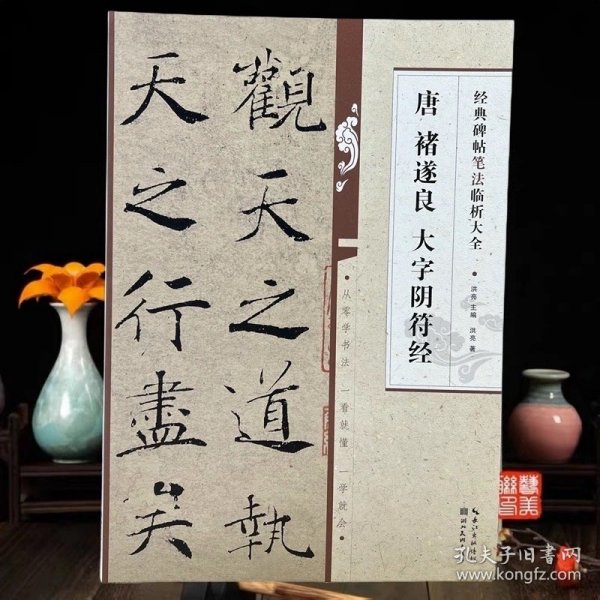 觀天之道執
天之行盡矣
经典碑帖笔法临析大全
洪亮 主编 洪亮 著
唐 褚遂良 大字阴符经
•从零学书法 一看就懂 一学就会•
孔夫子旧书网
www.kongfz.com